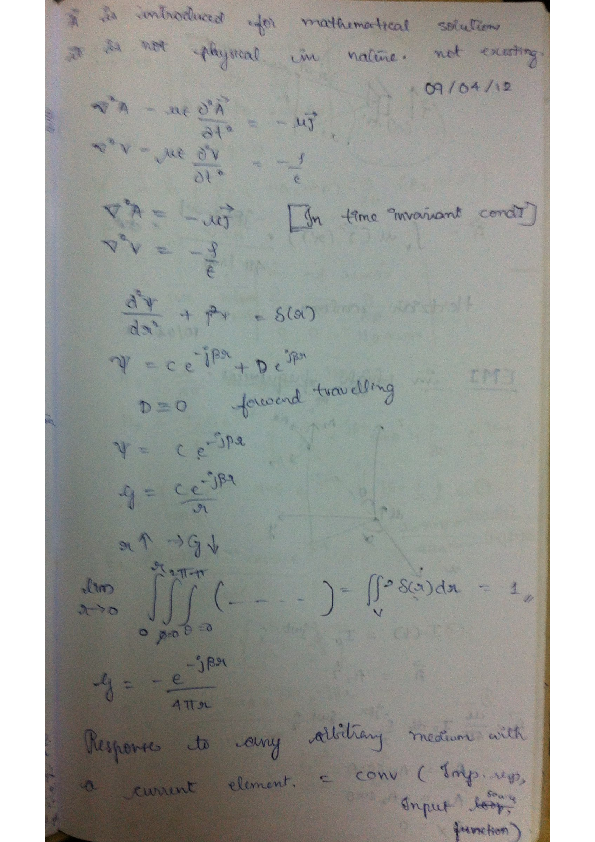 A⃗ is introduced for mathematical solution
It is not physical in nature. not existing.
09/04/12
∇²A - με ∂²A⃗/∂t² = - μJ⃗
∇²V - με ∂²V/∂t² = - ρ/ε
∇²A = - μJ⃗ [In time invariant condⁿ]
∇²V = - ρ/ε
d²ψ/dr² + β²ψ = δ(r)
ψ = C e^{-jβr} + D e^{jβr}
D = 0 forward travelling
ψ = C e^{-jβr}
G = C e^{-jβr}/r
r ↑ → G ↓
lim r→0 ∫₀^r ∫_{φ=0}^{2π} ∫_{θ=0}^{π} (- - - -) = ∭_V δ(r) dr = 1
G = - e^{-jβr}/4πr
Response to any arbitrary medium with
a current element. = conv (Imp. resp,
Input source
function)